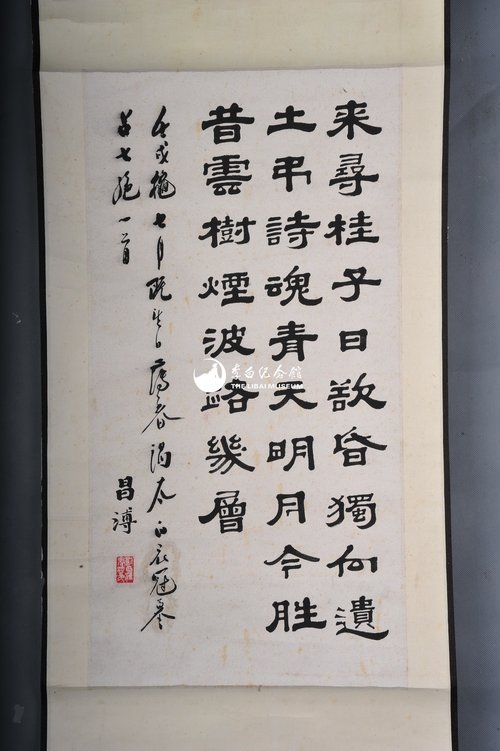 来尋桂子日欲昏獨向遺
土弔詩魂青天明月今胜
昔雲樹煙波路幾層
壬戌龝七月既望日蕩春謁太白衣冠墓
占七绝一首
昌溥
李白纪念館
THE LIBAI MUSEUM